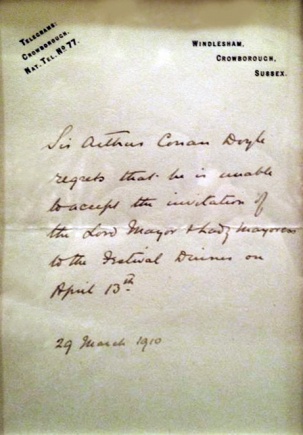 Telegrams:
Crowborough.
Nat. Tel. No 77.
Windlesham,
Crowborough,
Sussex.
Sir Arthur Conan Doyle
regrets that he is unable
to accept the invitation of
the Lord Mayor & Lady Mayoress
to the Festival Dinner on
April 13th
29 March 1910